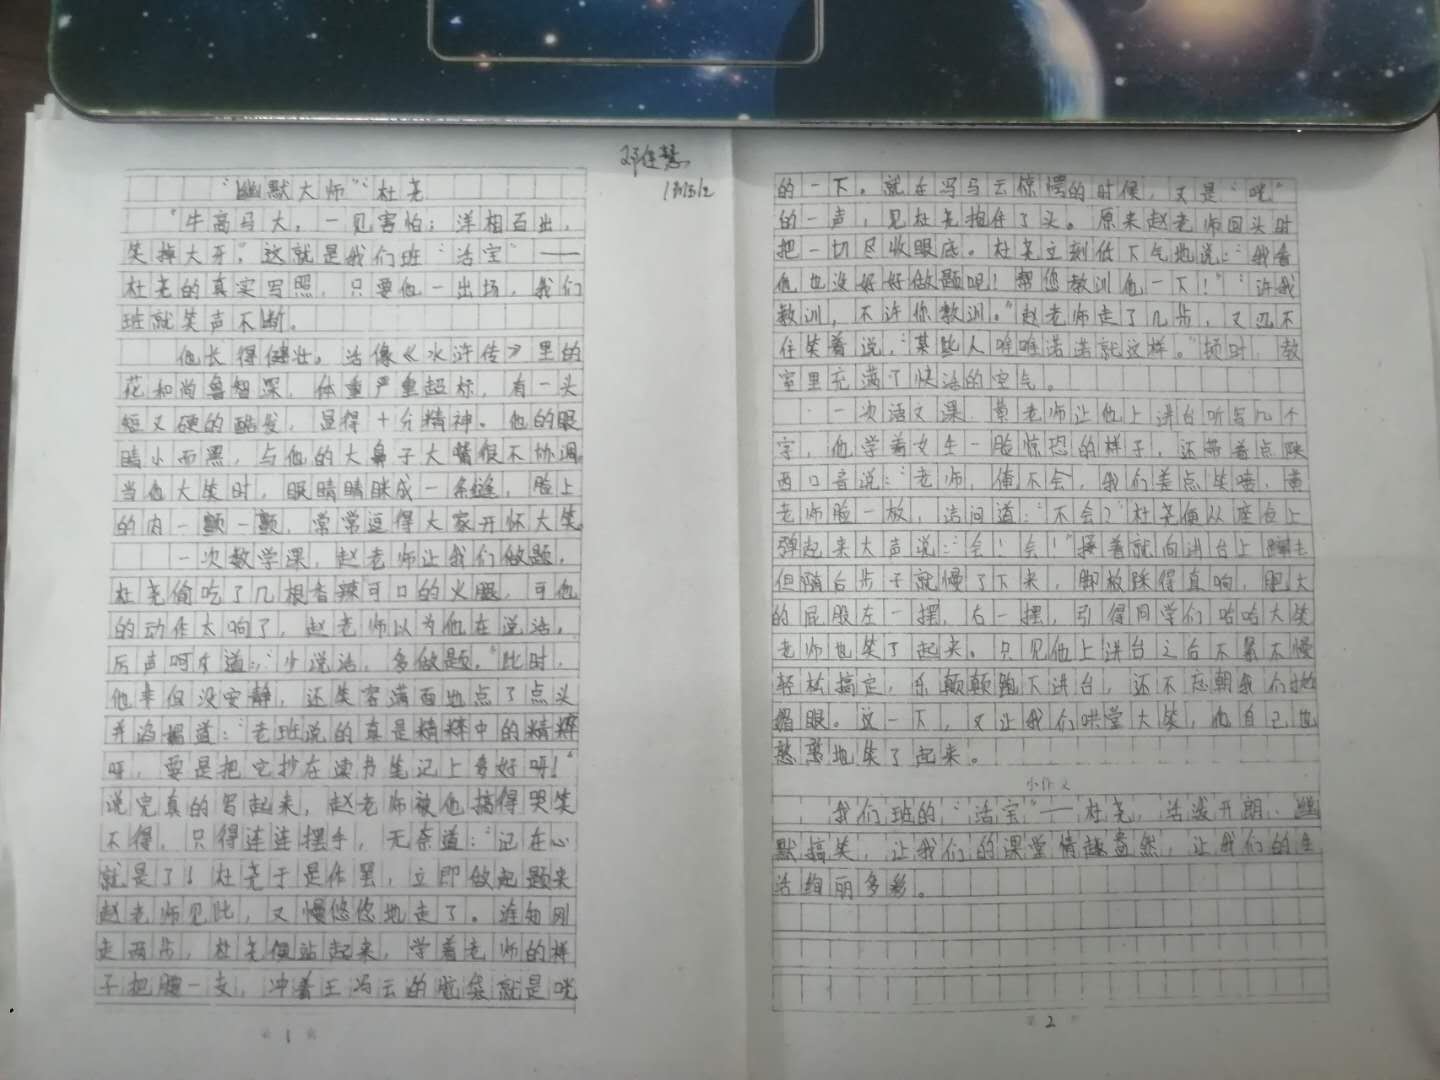 邓佳慧
“幽默大师”杜尧
“牛高马大，一见害怕；洋相百出，
笑掉大牙”这就是我们班“活宝”——
杜尧的真实写照，只要他一出场，我们
班就笑声不断。
他长得健壮。活像《水浒传》里的
花和尚鲁智深，体重严重超标，有一头
短又硬的酷发，显得十分精神。他的眼
睛小而黑，与他的大鼻子大嘴很不协调
当他大笑时，眼睛睛眯成一条缝，脸上
的肉一颤一颤，常常逗得大家开怀大笑
一次数学课，赵老师让我们做题，
杜尧偷吃了几根香辣可口的火腿，可他
的动作太响了，赵老师以为他在说话，
厉声呵斥道：“少说话，多做题。”此时，
他非但没安静，还笑容满面地点了点头
并谄媚道：“老班说的真是精粹中的精粹
呀，要是把它抄在读书笔记上多好呀！”
说完真的写起来，赵老师被他搞得哭笑
不得，只得连连摆手，无奈道：“记在心
就是了！杜尧于是作罢，立即做起题来
赵老师见此，又慢悠悠地走了。谁知刚
走两步，杜尧便站起来，学着老师的样
子把腰一支，冲着王冯云的脑袋就是咣
第1页
的一下。就在冯马云惊愕的时候，又是“咣”
的一声，见杜尧抱住了头。原来赵老师回头时
把一切尽收眼底。杜尧立刻低下气地说：“我看
他也没好好做题呢！帮您教训他一下！”“许我
教训，不许你教训。”赵老师走了几步，又忍不
住笑着说，“某些人唯唯诺诺就这样。”顿时，教
室里充满了快活的空气。
一次语文课，黄老师让他上讲台听写几个
字，他学着女生一脸惊恐的样子，还带着点陕
西口音说：“老师，俺不会，我们差点笑喷，黄
老师脸一放，洁问道：“不会？”杜尧便从座位上
弹起来大声说：“会！会！”接着就向讲台上蹿去
但随台步子就慢了下来，脚放踩得真响，肥大
的屁股左一摆，右一摆，引得同学们哈哈大笑
老师也笑了起来。只见他上讲台之后不紧不慢
轻松搞定，乐颠颠跑下讲台，还不忘朝我们抛
媚眼。这一下，又让我们哄堂大笑，他自己也
憨憨地笑了起来。
小作文
我们班的“活宝”——杜尧，活泼开朗、幽
默搞笑，让我们的课堂情趣盎然，让我们的生
活绚丽多彩。
第2页